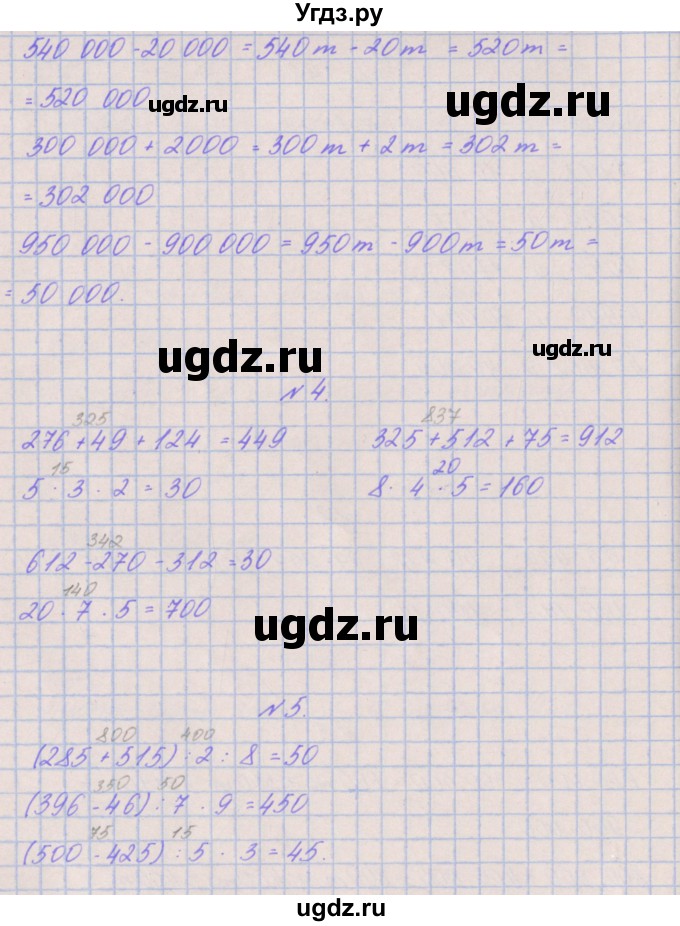 Угдз.ру
540 000 - 20 000 = 540 т - 20 т = 520 т =
= 520 000
ugdz.ru
ugdz.ru
300 000 + 2000 = 300 т + 2 т = 302 т =
= 302 000
950 000 - 900 000 = 950 т - 900 т = 50 т =
= 50 000.
ugdz.ru
ugdz.ru
№ 4.
325
837
276 + 49 + 124 = 449
325 + 512 + 75 = 912
15
20
5 · 3 · 2 = 30
8 · 4 · 5 = 160
342
612 - 270 - 312 = 30
140
20 · 7 · 5 = 700
ugdz.ru
№ 5.
800 400
(285 + 515) : 2 : 8 = 50
350 50
(396 - 46) : 7 · 9 = 450
75 15
(500 - 425) : 5 · 3 = 45.
ugdz.ru